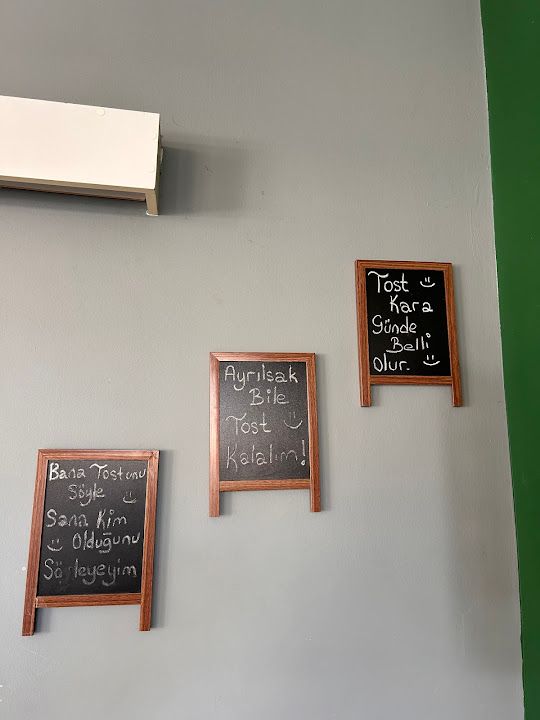 Bana Tostunu
Söyle
Sana Kim
Olduğunu
Söyleyeyim
Ayrılsak
Bile
Tost
Kalalım!
Tost
Kara
Günde
Belli
Olur.